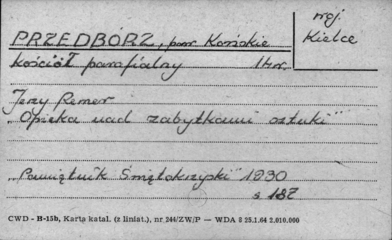 woj.
Kielce
PRZEDBÓRZ, pow. Końskie
kościół parafialny
Jerzy Remer
"Opieka nad zabytkami sztuki"
"Pamiętnik Świętokrzyski" 1930
s 187
CWD - B-15b, Karta katal. (z liniat.), nr 244/ZW/P — WDA 8 25.1.64 2.010.000